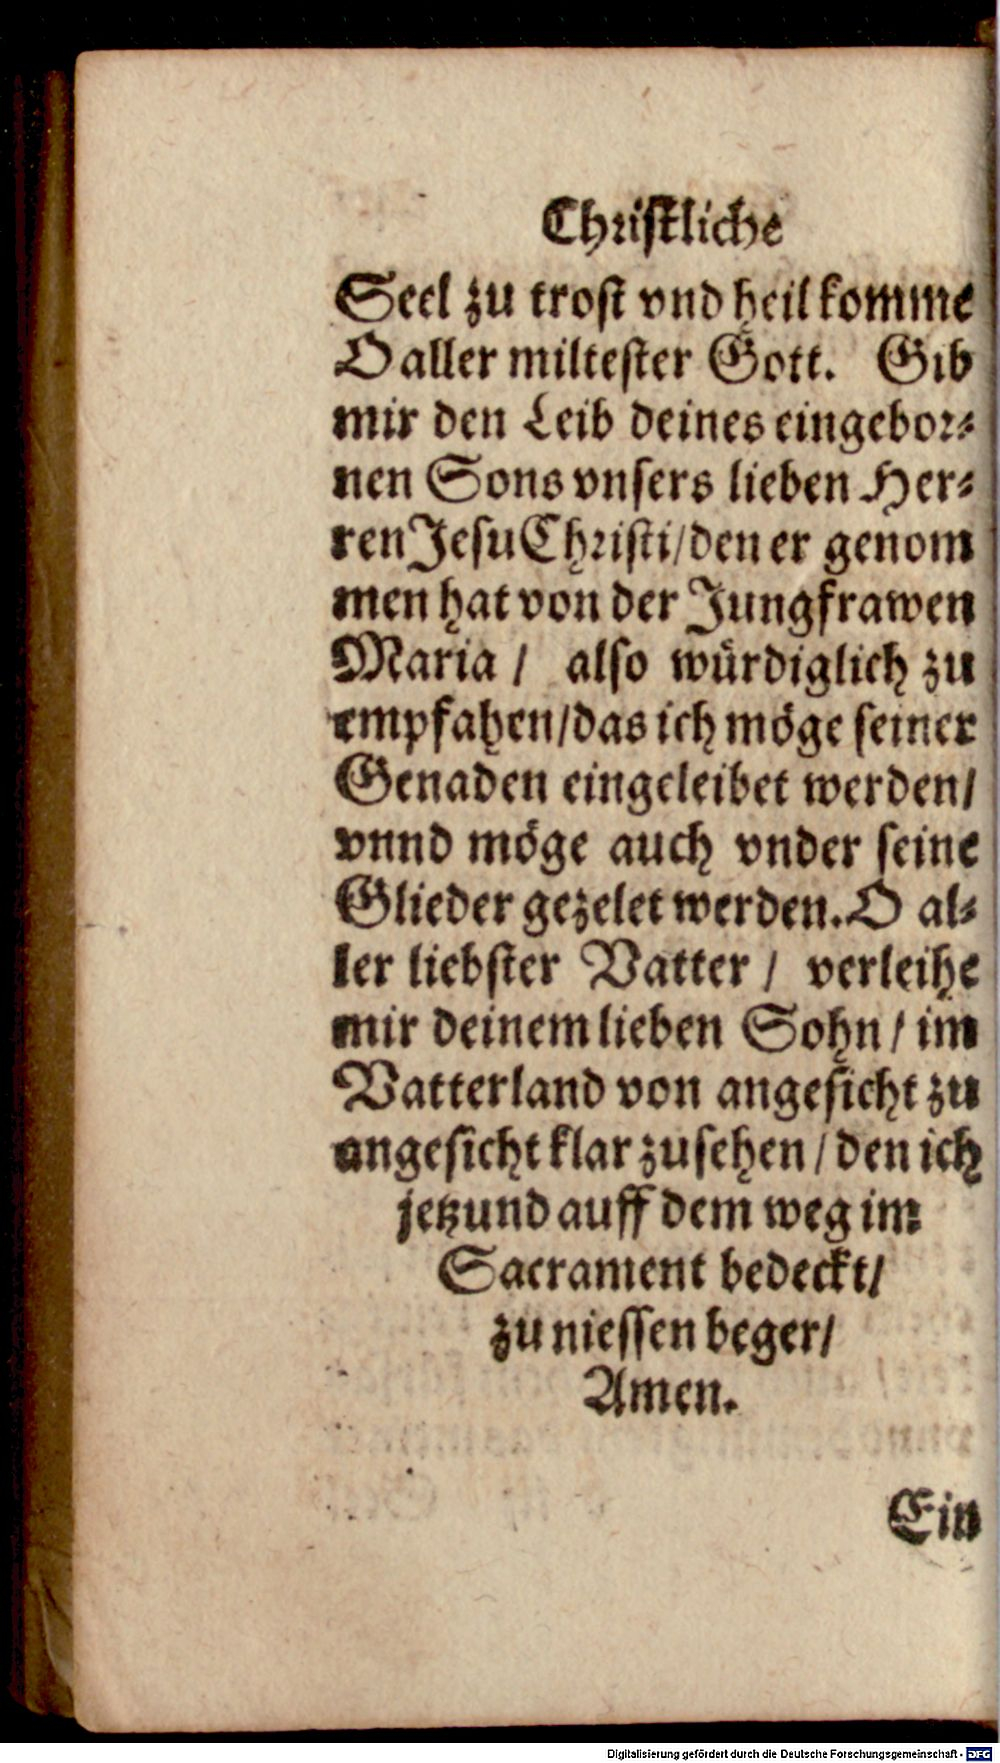 Christliche
Seel zu trost vnd heil komme
O aller miltester Gott. Gib
mir den Leib deines eingebor⸗
nen Sons vnsers lieben Her⸗
ren Jesu Christi/den er genom
men hat von der Jungfrawen
Maria / also würdiglich zu
empfahen/das ich möge seiner
Genaden eingeleibet werden/
vnnd möge auch vnder seine
Glieder gezelet werden. O al⸗
ler liebster Vatter / verleihe
mir deinem lieben Sohn / im
Vatterland von angesicht zu
angesicht klar zusehen / den ich
jetzund auff dem weg im
Sacrament bedeckt/
zu niessen beger/
Amen.
Ein
Digitalisierung gefördert durch die Deutsche Forschungsgemeinschaft - DFG